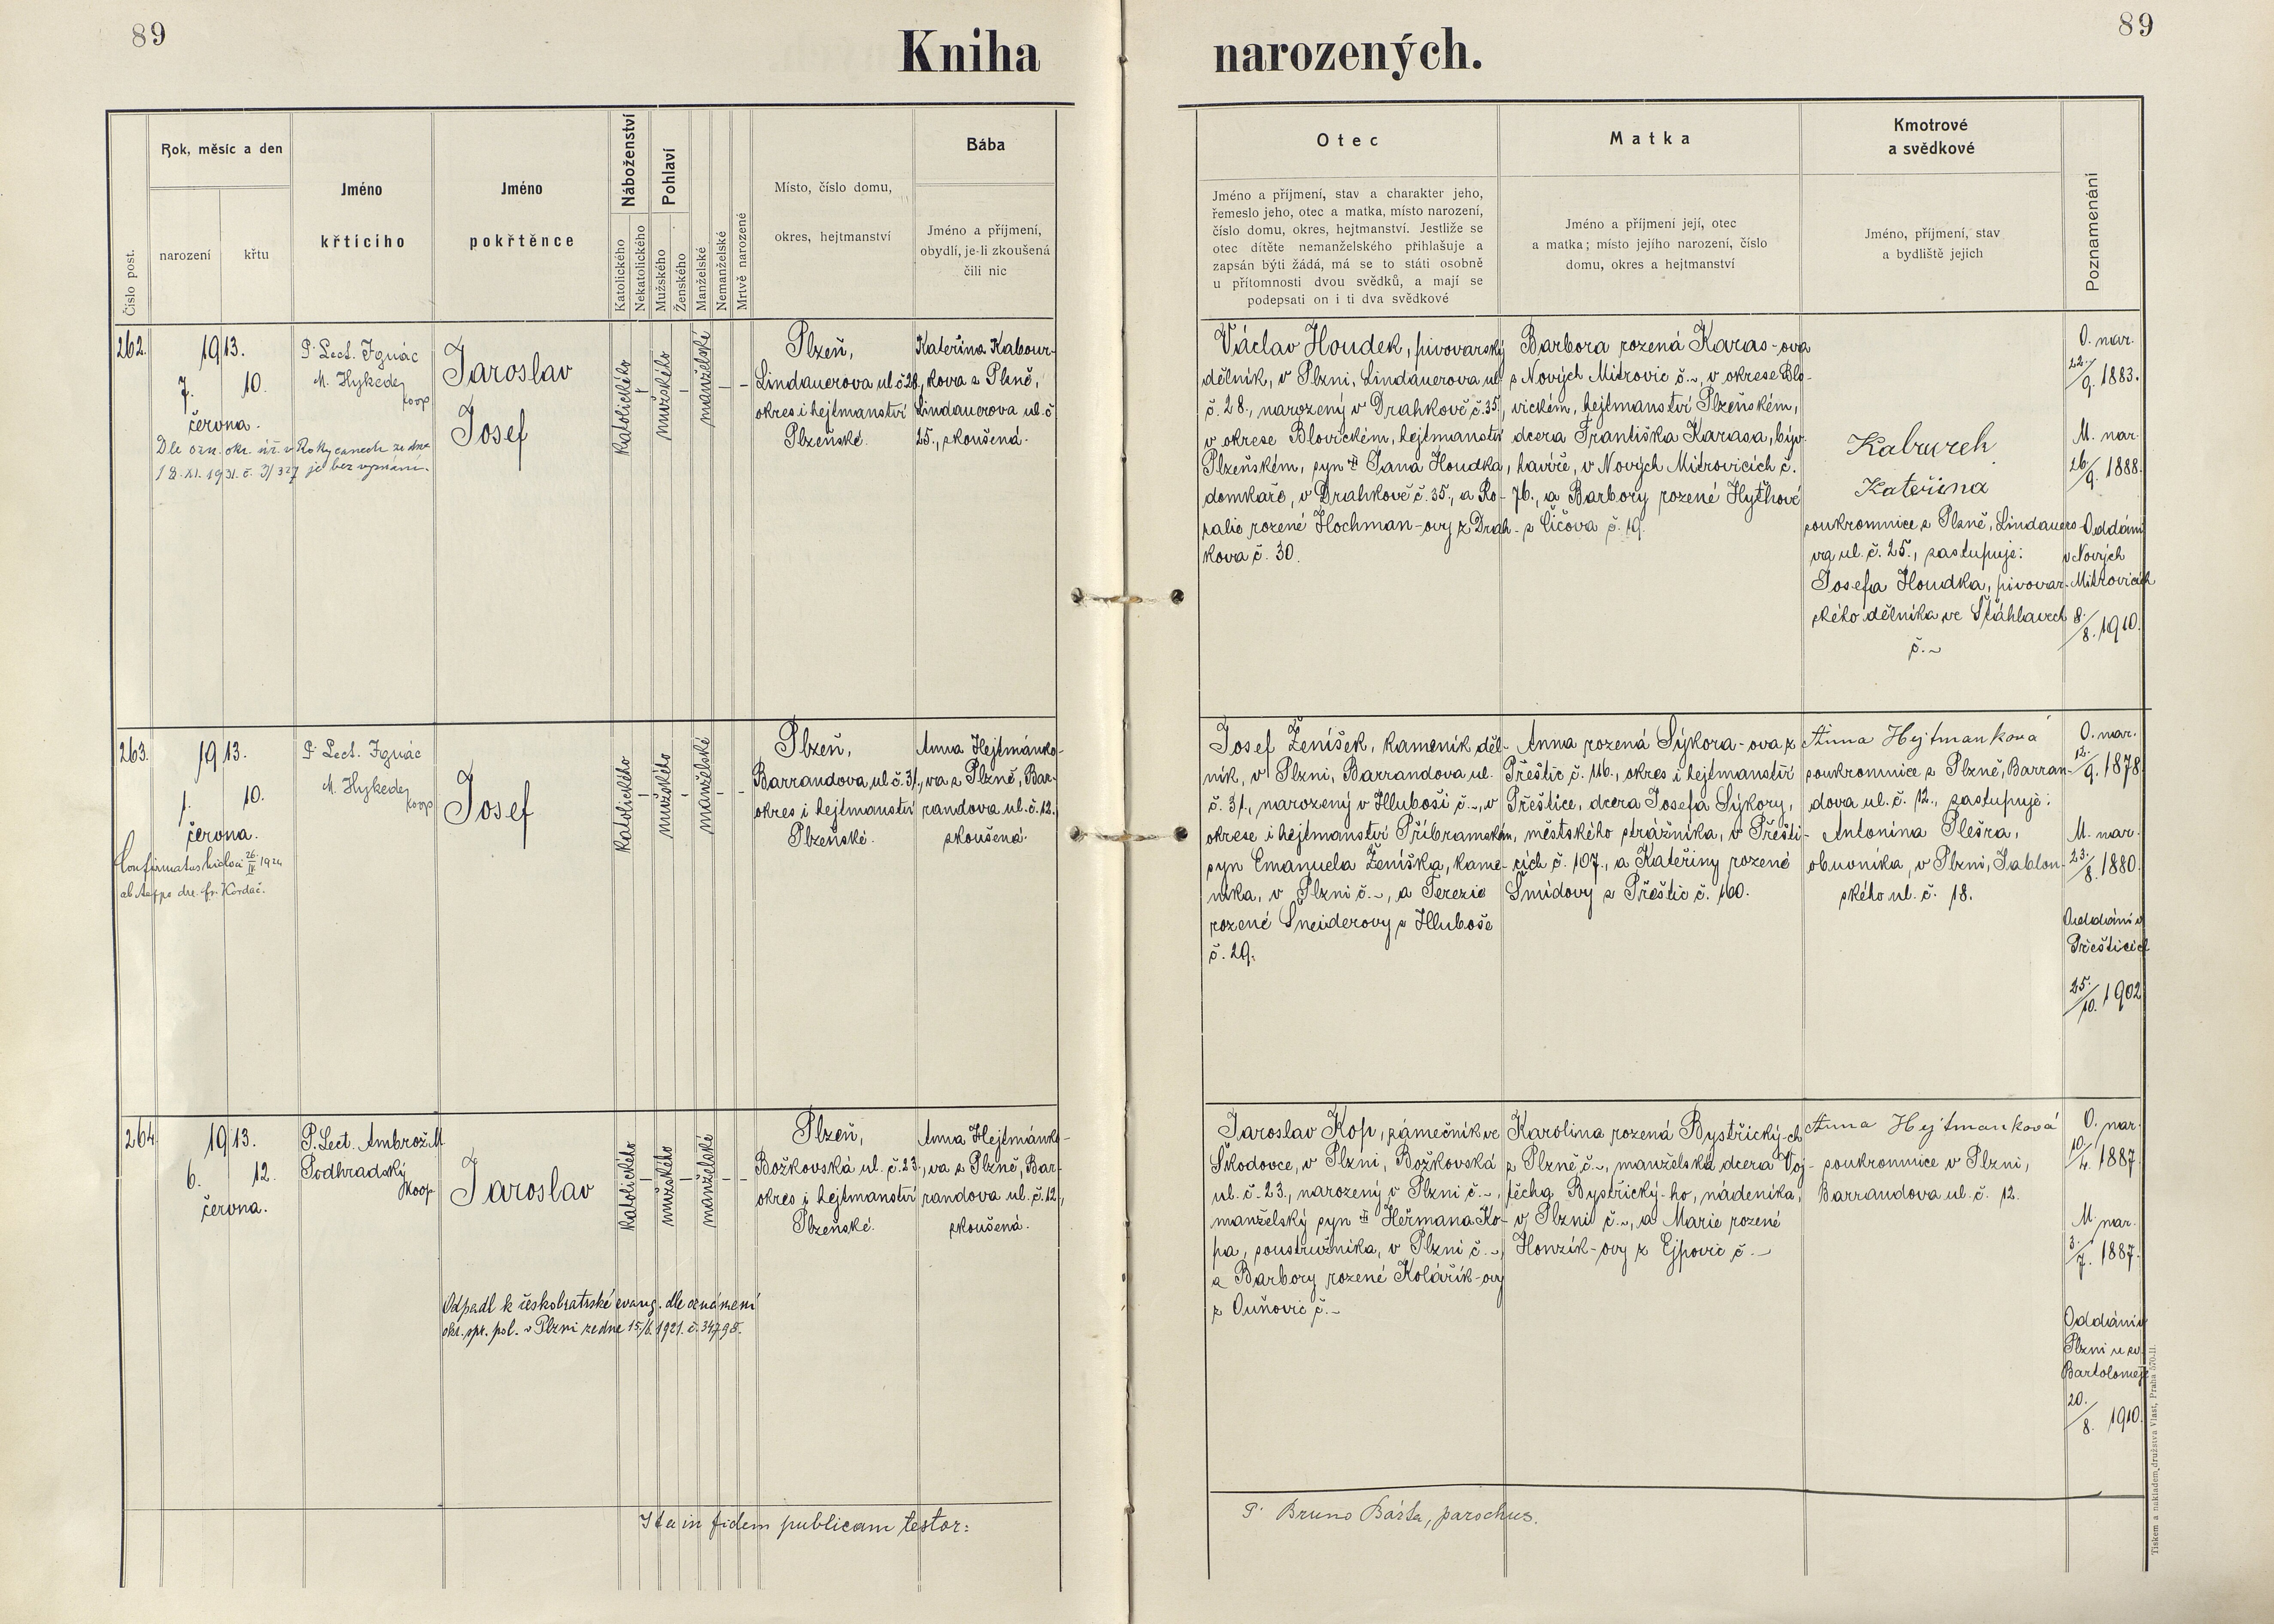 89
Kniha narozených.
89
Číslo post.
Rok, měsíc a den
narození
křtu
Jméno
křtícího
Jméno
pokřtěnce
Náboženství
Katolického
Nekatolického
Pohlaví
Mužského
Ženského
Manželské
Nemanželské
Mrtvě narozené
Místo, číslo domu,
okres, hejtmanství
Bába
Jméno a příjmení,
obydlí, je-li zkoušená
čili nic
Otec
Jméno a příjmení, stav a charakter jeho,
řemeslo jeho, otec a matka, místo narození,
číslo domu, okres, hejtmanství. Jestliže se
otec dítěte nemanželského přihlašuje a
zapsán býti žádá, má se to státi osobně
u přítomnosti dvou svědků, a mají se
podepsati on i ti dva svědkové
Matka
Jméno a příjmení její, otec
a matka; místo jejího narození, číslo
domu, okres a hejtmanství
Kmotrové
a svědkové
Jméno, příjmení, stav
a bydliště jejich
Poznamenání
262.
1913.
7. 10.
června.
Dle ozn. okr. úř. v Rokycanech ze dne
18.XI.1931. č. 3/327 je bez vyznání.
P. Lect. Ignác
M. Hykeděj
koop
Jaroslav
Josef
katolického
–
mužského
–
manželské
–
–
Plzeň,
Lindauerova ul č 28.,
okres i hejtmanství
Plzeňské.
Kateřina Kabour-
kova z Plzně,
Lindauerova ul. č
25., zkoušená.
Václav Houdek, pivovarský
dělník, v Plzni, Lindauerova ul
č. 28., narozený v Drahkově č. 35,
v okrese Blovickém, hejtmanství
Plzeňském, syn Jana Houdka,
domkaře, v Drahkově č. 35., a Ro-
salie rozené Hochman-ovy z Drah-
kova č. 30.
Barbora rozená Karas-ova
z Nových Mitrovic č. ~, v okrese Blo-
vickém, hejtmanství Plzeňském,
dcera Františka Karasa, býv.
havíře, v Nových Mitrovicích č.
76., a Barbory rozené Hythové
z Čičova č. 19.
Kateřina
soukromnice z Plzně, Lindauero-
va ul. č. 25., zastupuje:
Josefa Houdka, pivovar-
ského dělníka ve Šťáhlavech
č. ~
O. nar.
22./9. 1883.
M. nar.
26/9. 1888.
Oddáni
v Nových
Mitrovicích
8./8. 1910.
263.
1913.
1. 10.
června.
ab Aeppo dre. Fr. Kordač.
P. Lect. Ignác
M. Hykeděj
koop
Josef
katolického
–
mužského
–
manželské
–
–
Plzeň,
Barrandova, ul č. 31.,
okres i hejtmanství
Plzeňské.
Anna Hejtmánko-
va z Plzně, Bar-
randova ul. č. 12.
zkoušená.
Josef Ženíšek, kameník děl-
ník, v Plzni, Barrandova ul.
č. 31., narozený v Hluboši č. ~, v
okrese i hejtmanství Příbramském,
syn Emanuela Ženíška, kame-
níka, v Plzni č. ~, a Terezie
rozené Šneiderovy z Hluboše
č. 29.
Anna rozená Sýkora-ova z
Přeštic č. 116., okres i hejtmanství
Přeštice, dcera Josefa Sýkory,
městského strážníka, v Přešti-
cích č. 107., a Kateřiny rozené
Šmídovy z Přeštic č. 100.
Anna Hejtmanková
soukromnice z Plzně, Barran-
dova ul. č. 12., zastupuje:
Antonína Plešra,
obuvníka, v Plzni, Jablon-
ského ul. č. 18.
O. nar.
12./9. 1878.
M. nar.
23./8. 1880.
Oddáni v
Přešticích
25./10. 1902
264
1913.
6. 12.
června.
P. Lect. Ambrož M.
Podhradský
koop
Jaroslav
katolického
–
mužského
–
manželské
–
–
Plzeň,
Božkovská ul. č. 23.,
okres i hejtmanství
Plzeňské.
Anna Hejtmánko-
va z Plzně, Bar-
randova ul. č. 12.,
zkoušená.
Odpadl k českobratrské evang. dle oznámení
okr. spr. pol. v Plzni ze dne 15./6. 1921. č. 34795.
Jaroslav Kop, zámečník ve
Škodovce, v Plzni, Božkovská
ul. č. 23., narozený v Plzni č. ~,
manželský syn Heřmana Ko-
pa, soustružníka, v Plzni č. ~,
a Barbory rozené Kolářík-ovy
z Ouňovic č. ~
Karolina rozená Bystřický-ch
z Plzně č. ~, manželská dcera Voj-
těcha Bystřický-ho, nádeníka,
v Plzni č. ~, a Marie rozené
Honzík-ovy z Ejpovic č. ~
Anna Hejtmanková
soukromnice v Plzni,
Barrandova ul. č. 12.
O. nar.
10./4. 1887
M. nar.
3./7. 1887.
Oddáni v
Plzni u sv.
Bartoloměje
20./8. 1910.
Ita in fidem publicam testor:
P. Bruno Bášta, parochus.
Tiskem a nákladem družstva Vlast, Praha 570-II.